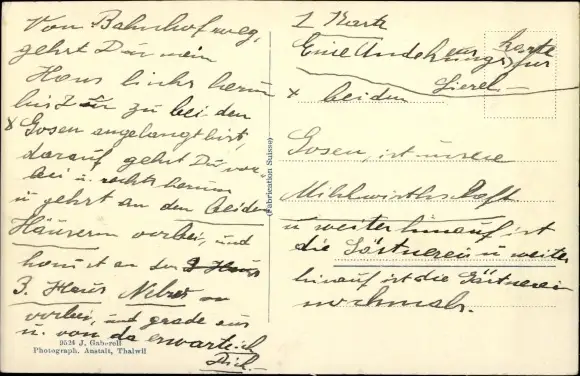 Vom Bahnhof weg,
gehst Du mein
Haus links herum
bis Du zu bei den
x Gosen angelangt bist,
darauf gehst Du vor-
bei u. rechts herum
u gehst an den beiden
Häusern vorbei, und
kommst an der 3 Haus
3. Haus
vorbei, und grade aus
u. von da erwarte ich
Dich.-
9524 J. Gaberell
Photograph. Anstalt, Thalwil
(Fabrication Suisse)
1 Karte
Eine Andehnungs für
Karte
x bei den
Gosen, ist unsere
Milchwirthschaft
u weiter hinauf ist
die Gärtnerei u weiter
hinauf ist die Gärtnerei
nochmals.